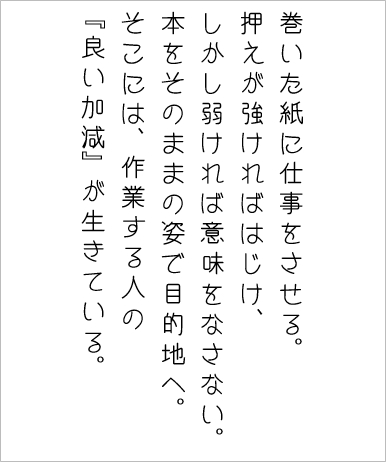 巻いた紙に仕事をさせる。
押えが強ければはじけ、
しかし弱ければ意味をなさない。
本をそのままの姿で目的地へ。
そこには、作業する人の
『良い加減』が生きている。